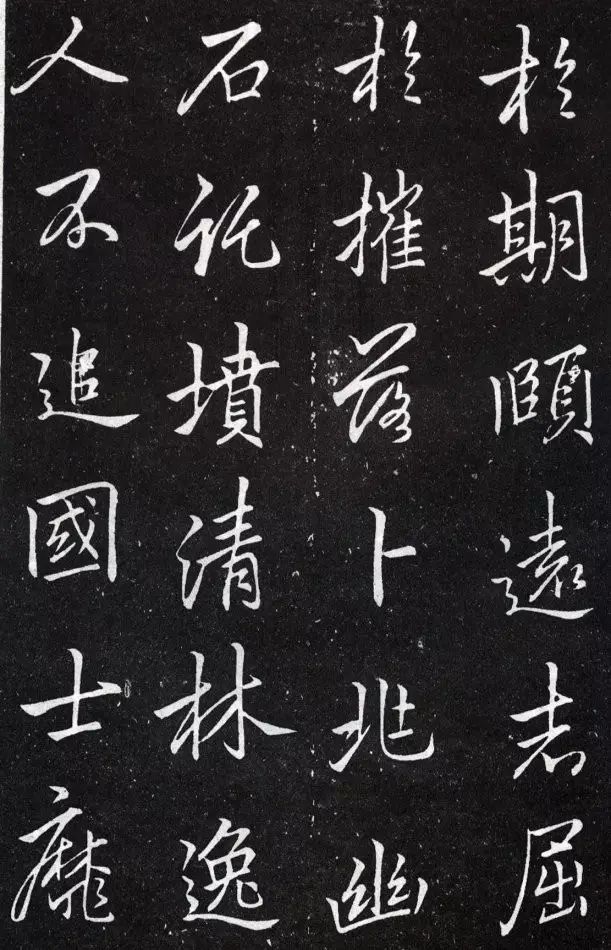 於期頤遠志屈
於摧落卜兆幽
石託墳清林逸
人不追國士靡